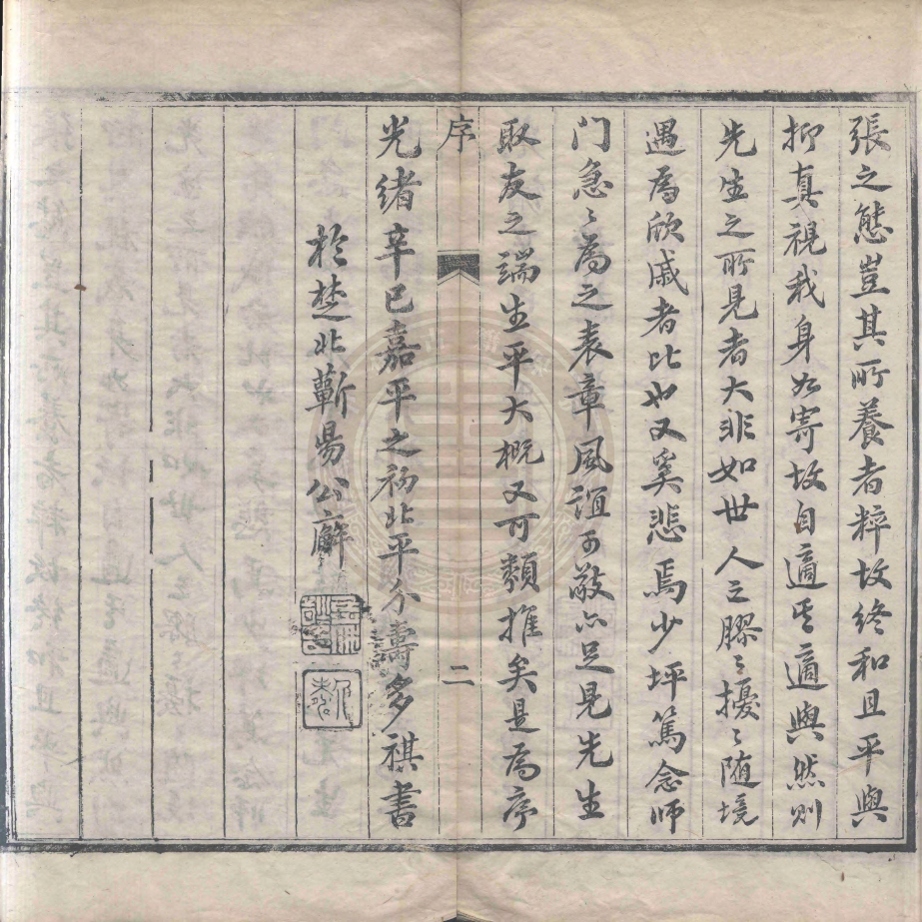 張之態豈其所養者粹故終和且平與
抑真視我身如寄故自適其適與然則
先生之所見者大非如世人之膠〻擾〻随境
遇為欣戚者比也又奚悲焉少坪篤念師
门急〻為之表章風誼可敬亦足見先生
取友之端生平大概又可類推矣是為序
序
二
光緒辛巳嘉平之初北平介壽多祺書
於楚北蘄昜公廨